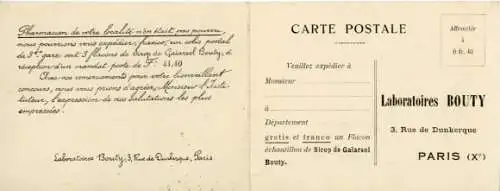 Pharmacien de votre localité n'en était pas pourvu
nous pourrions vous expédier, franco, un colis postal
de 3 kgs gare ont 3 flacons de Sirop de Galarsol Bouty, à
réception d'un mandat poste de Frs 41,40
Avec nos remerciements pour votre bienveillant
concours, nous vous prions d'agréer, Monsieur l'Insti-
tuteur, l'expression de nos salutations les plus
empressées.
Laboratoires Bouty, 3, Rue de Dunkerque, Paris
CARTE POSTALE
Affranchir
à
0 fr. 40
Veuillez expédier à
Monsieur
à
Département
gratis et franco un Flacon
échantillon de Sirop de Galarsol
Bouty.
Laboratoires BOUTY
3, Rue de Dunkerque
PARIS (Xe)